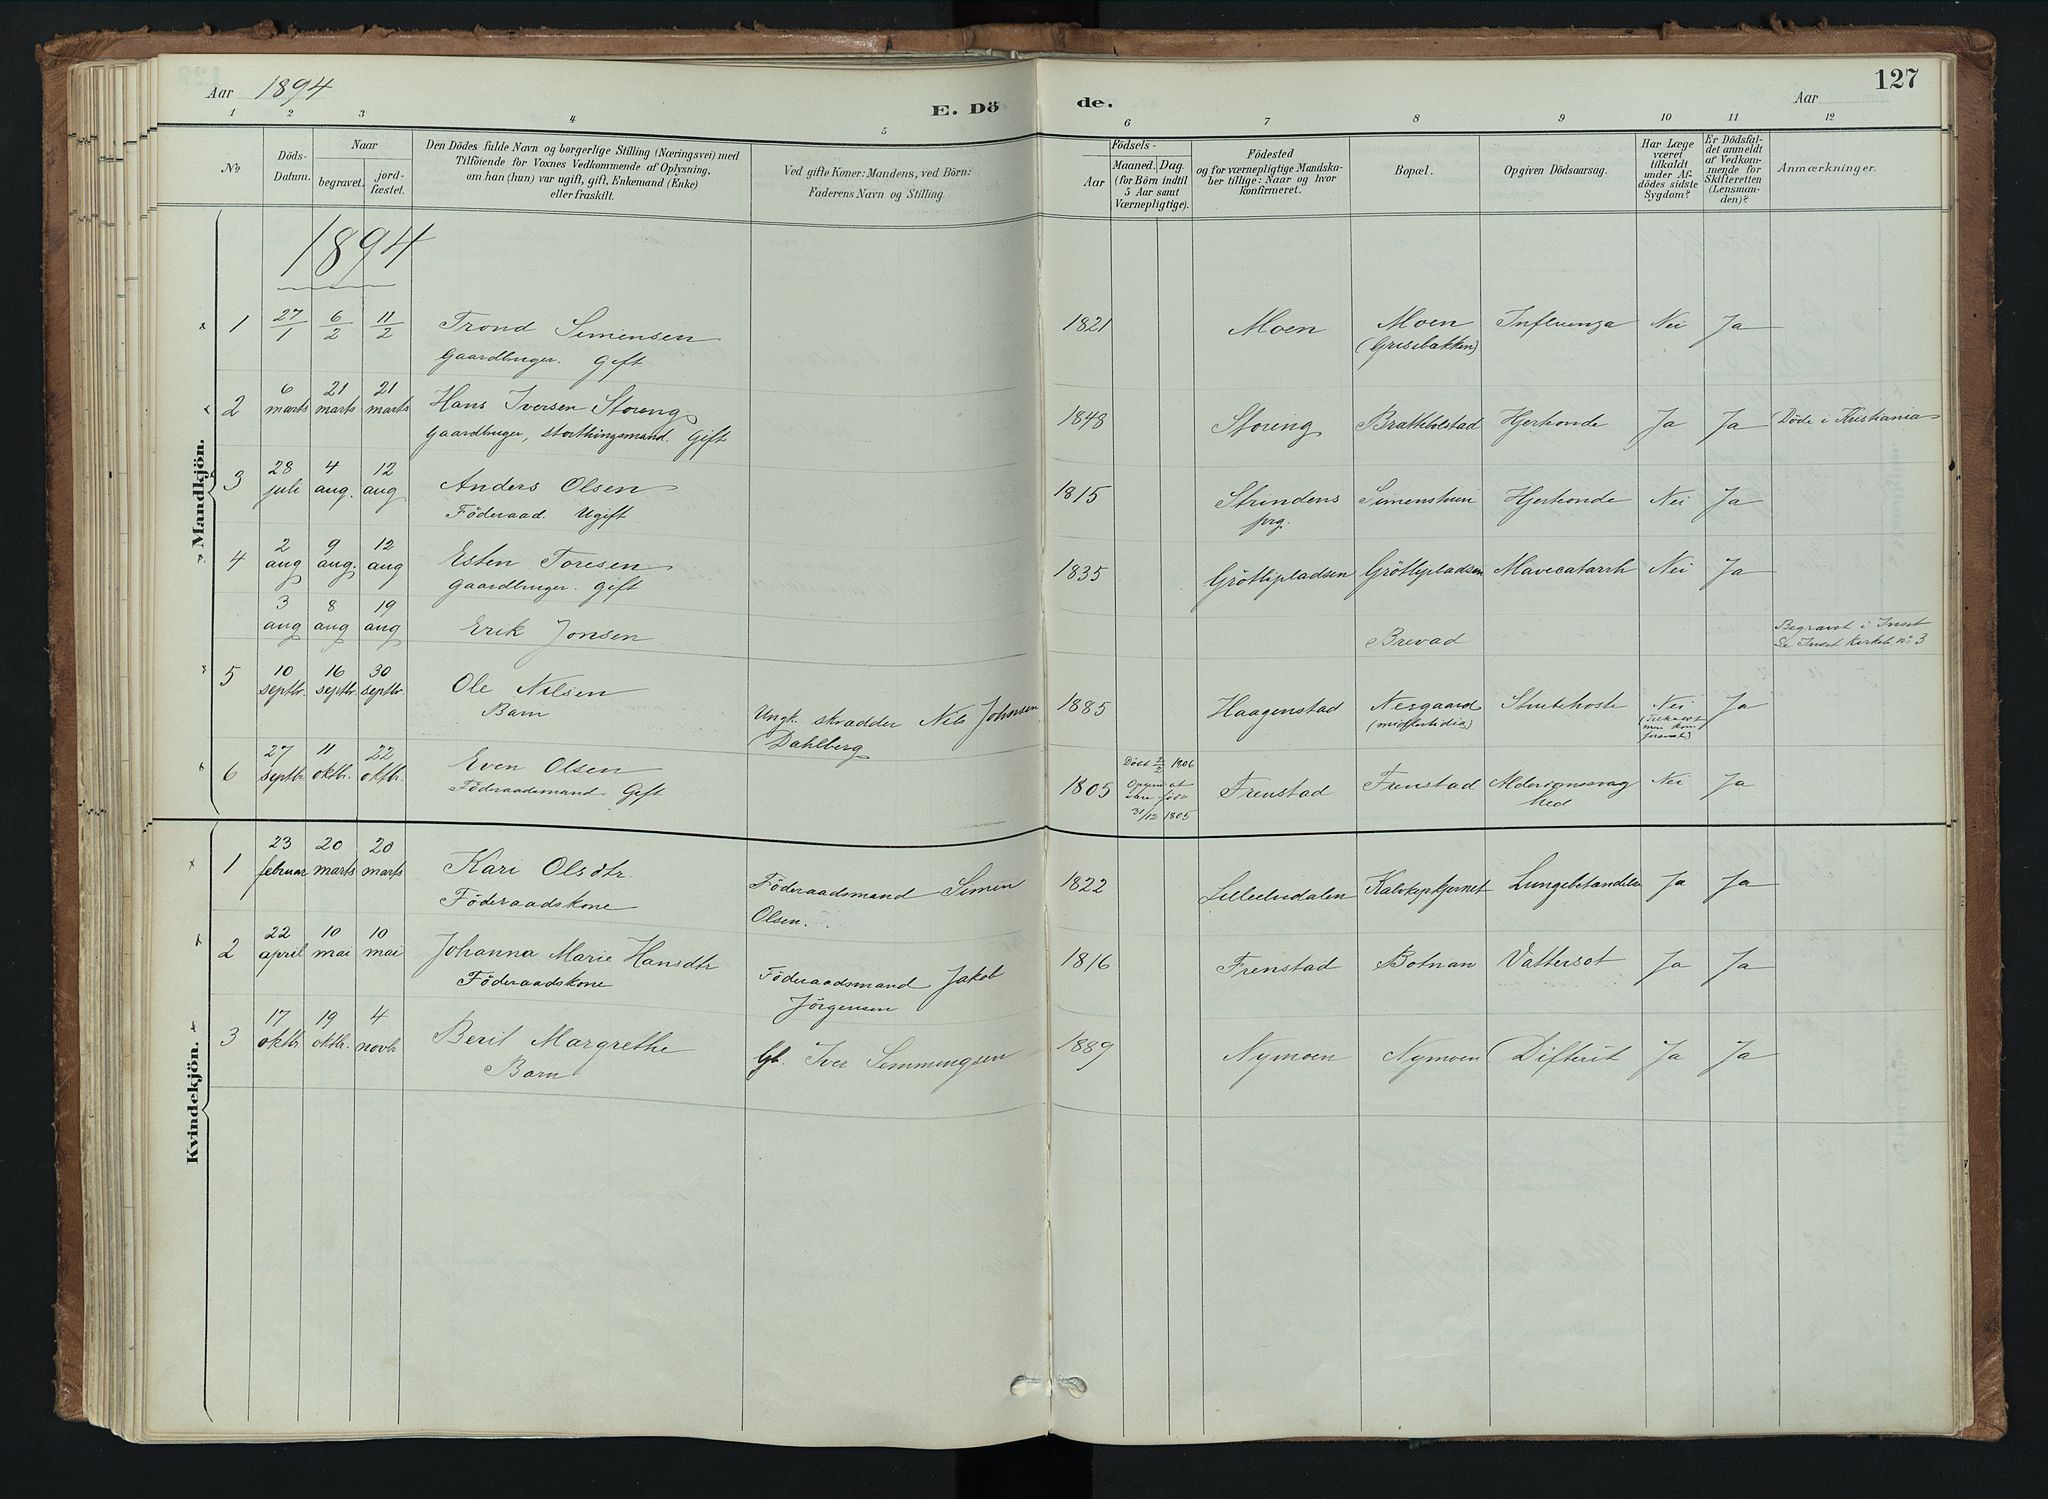 Aar 1894
E. Dö
de.
Aar
127
1 2 3 4 5 6 7 8 9 10 11 12
No.
Döds-Datum.
Naar
begravet.
jord-fæstet.
Den Dödes fulde Navn og borgerlige Stilling (Næringsvei) med
Tilföiende for Voxnes Vedkommende af Oplysning,
om han (hun) var ugift, gift, Enkemand (Enke)
eller fraskilt.
Ved gifte Koner: Mandens, ved Börn:
Faderens Navn og Stilling.
Födsels-
Aar
Maaned. Dag.
(for Börn indtil
5 Aar samt
Værnepligtige).
Födested
og for værnepligtige Mandska-
ber tillige: Naar og hvor
konfirmeret.
Bopæl.
Opgiven Dödsaarsag.
Har Læge
været
tilkaldt
under Af-
dödes sidste
Sygdom?
Er Dödsfal-
det anmeldt
af Vedkom-
mende for
Skifteretten
(Lensman-
den)?
Anmærkninger.
1894
Mandkjön.
1 27/1 6/2 11/2 Trond Simensen 1821 Moen Moen Influenza Nei Ja
Gaardbruger. Gift (Grisebakken)
2 6 marts 21 marts 21 marts Hans Iversen Storeng. 1848 Storeng Brattbolstad Hjerteonde Ja Ja Döde i Kristiania
Gaardbruger, storthingsmand. Gift
3 28 juli 4 aug. 12 aug Anders Olsen 1815 Strindens Simenstuen Hjerteonde Nei Ja
Föderaad. Ugift prg.
4 2 aug 9 aug. 12 aug Esten Toresen 1835 Gröttipladsen Gröttipladsen Mavecatarrh Nei Ja
Gaardbruger. Gift
3 aug 8 aug 19 aug Erik Jonsen Brevad Begravet i Inset
Se Inset Kirkeb. no. 3
5 10 septbr. 16 septbr. 30 septbr. Ole Nilsen Ungk. skrædder Nils Johnsen 1885 Haagenstad Nergaard Strubehoste Nei Ja
Barn Dahlberg (midlertidig) (Tilkaldt
men kom
6 27 septbr. 11 oktbr. 22 oktbr. Even Olsen 1805 Döbt 2/2 1806 Frenstad Frenstad Alderdomssvag Nei Ja
Föderaadsmand. Gift Opgivet at hed
være född
31/12 1805
Kvindekjön.
1 23 februar 20 marts 20 marts Kari Olsdtr. Föderaadsmand Simen 1822 Lilleelvedalen Kalvkeptjernet Lungebetændelse Ja Ja
Föderaadskone Olsen.
2 22 april 10 mai 10 mai Johanna Marie Hansdtr Föderaadsmand Jakob 1816 Frenstad Botnan Vattersot Ja Ja
Föderaadskone Jörgensen
3 17 oktbr 19 oktbr. 4 novbr Beril Margrethe Gb. Iver Semmingsen 1889 Nymoen Nymoen Difterit Ja Ja
Barn